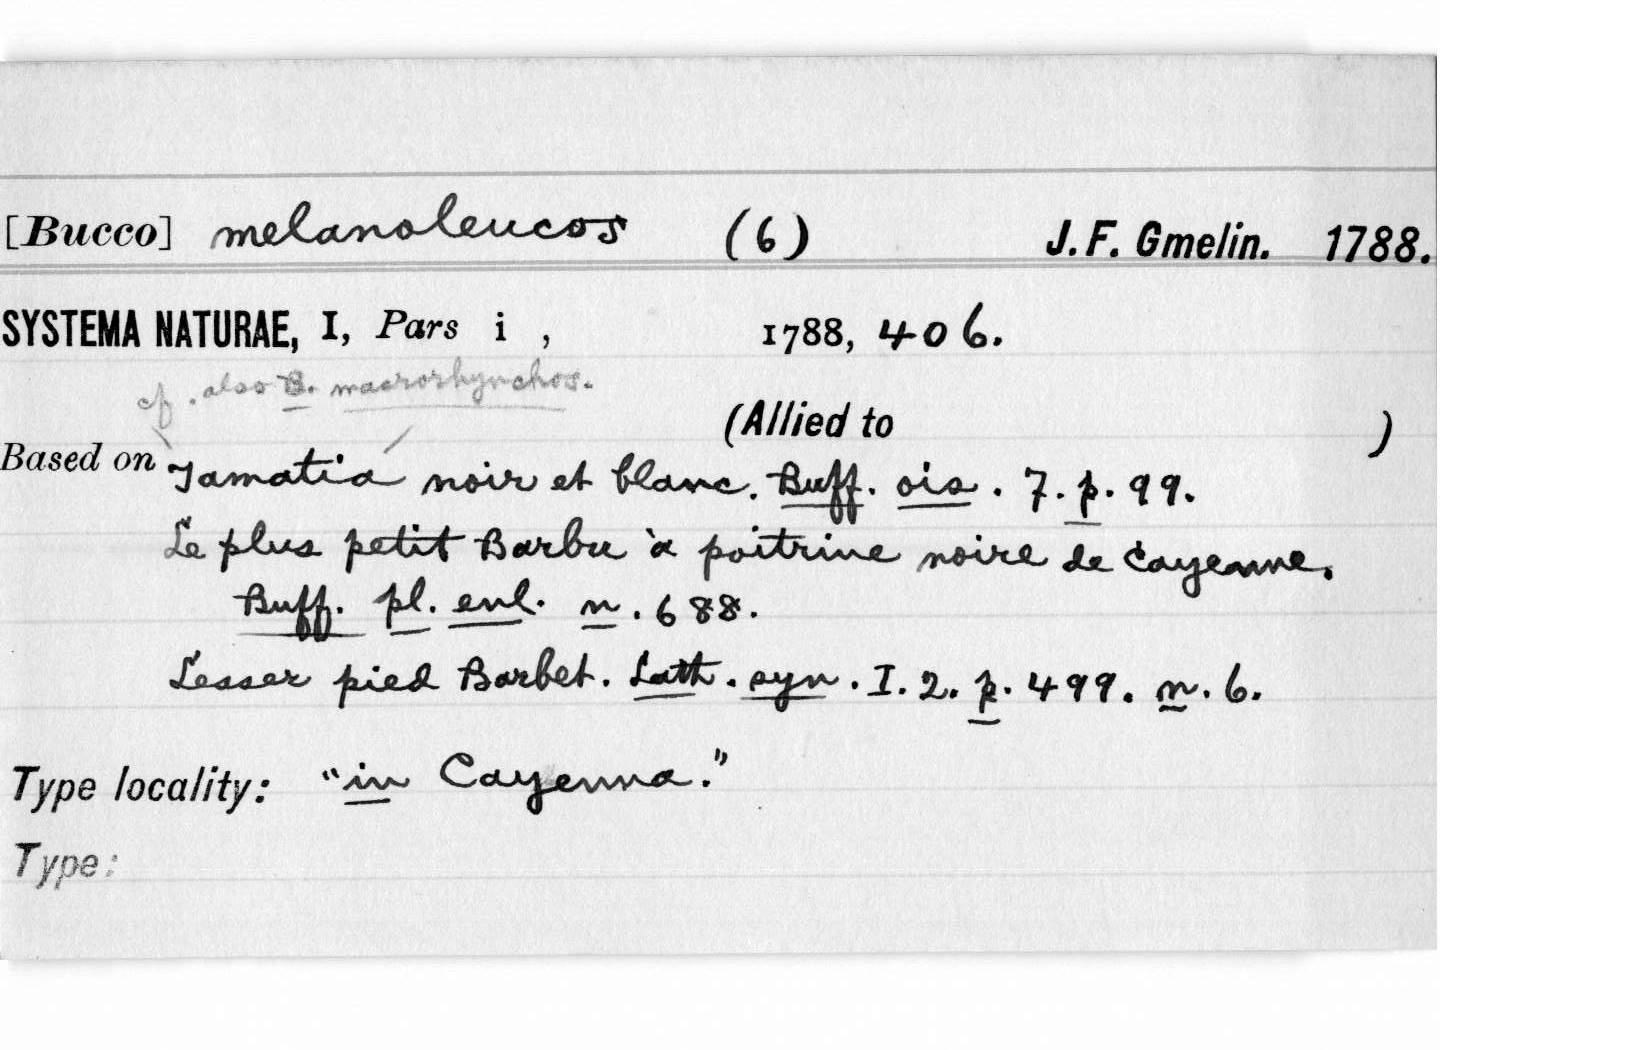 [Bucco] melanoleucos (6) J. F. Gmelin. 1788.
SYSTEMA NATURAE, I, Pars i , 1788, 406.
cf. also B. macrorhynchos.
(Allied to )
Based on Tamatia noir et blanc. Buff. ois. 7. p. 99.
Le plus petit Barbu à poitrine noire de Cayenne.
Buff. pl. enl. n. 688.
Lesser pied Barbet. Lath. syn. I. 2. p. 499. n. 6.
Type locality: "in Cayenna."
Type: